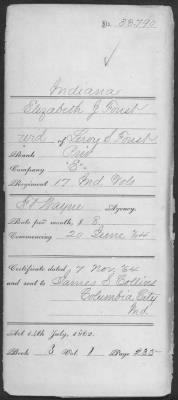 No. 33790
Indiana
Elizabeth J Foust
wid of Leroy S Foust
Rank Priv
Company "E"
Regiment 17 Ind Vols
Ft Wayne Agency.
Rate per month, $8
Commencing 20 June 64
Certificate dated 7 Nov 64
and sent to James S Collins
Columbia City
Ind
Act 14th July, 1862.
Book 3 Vol. 1 Page 235